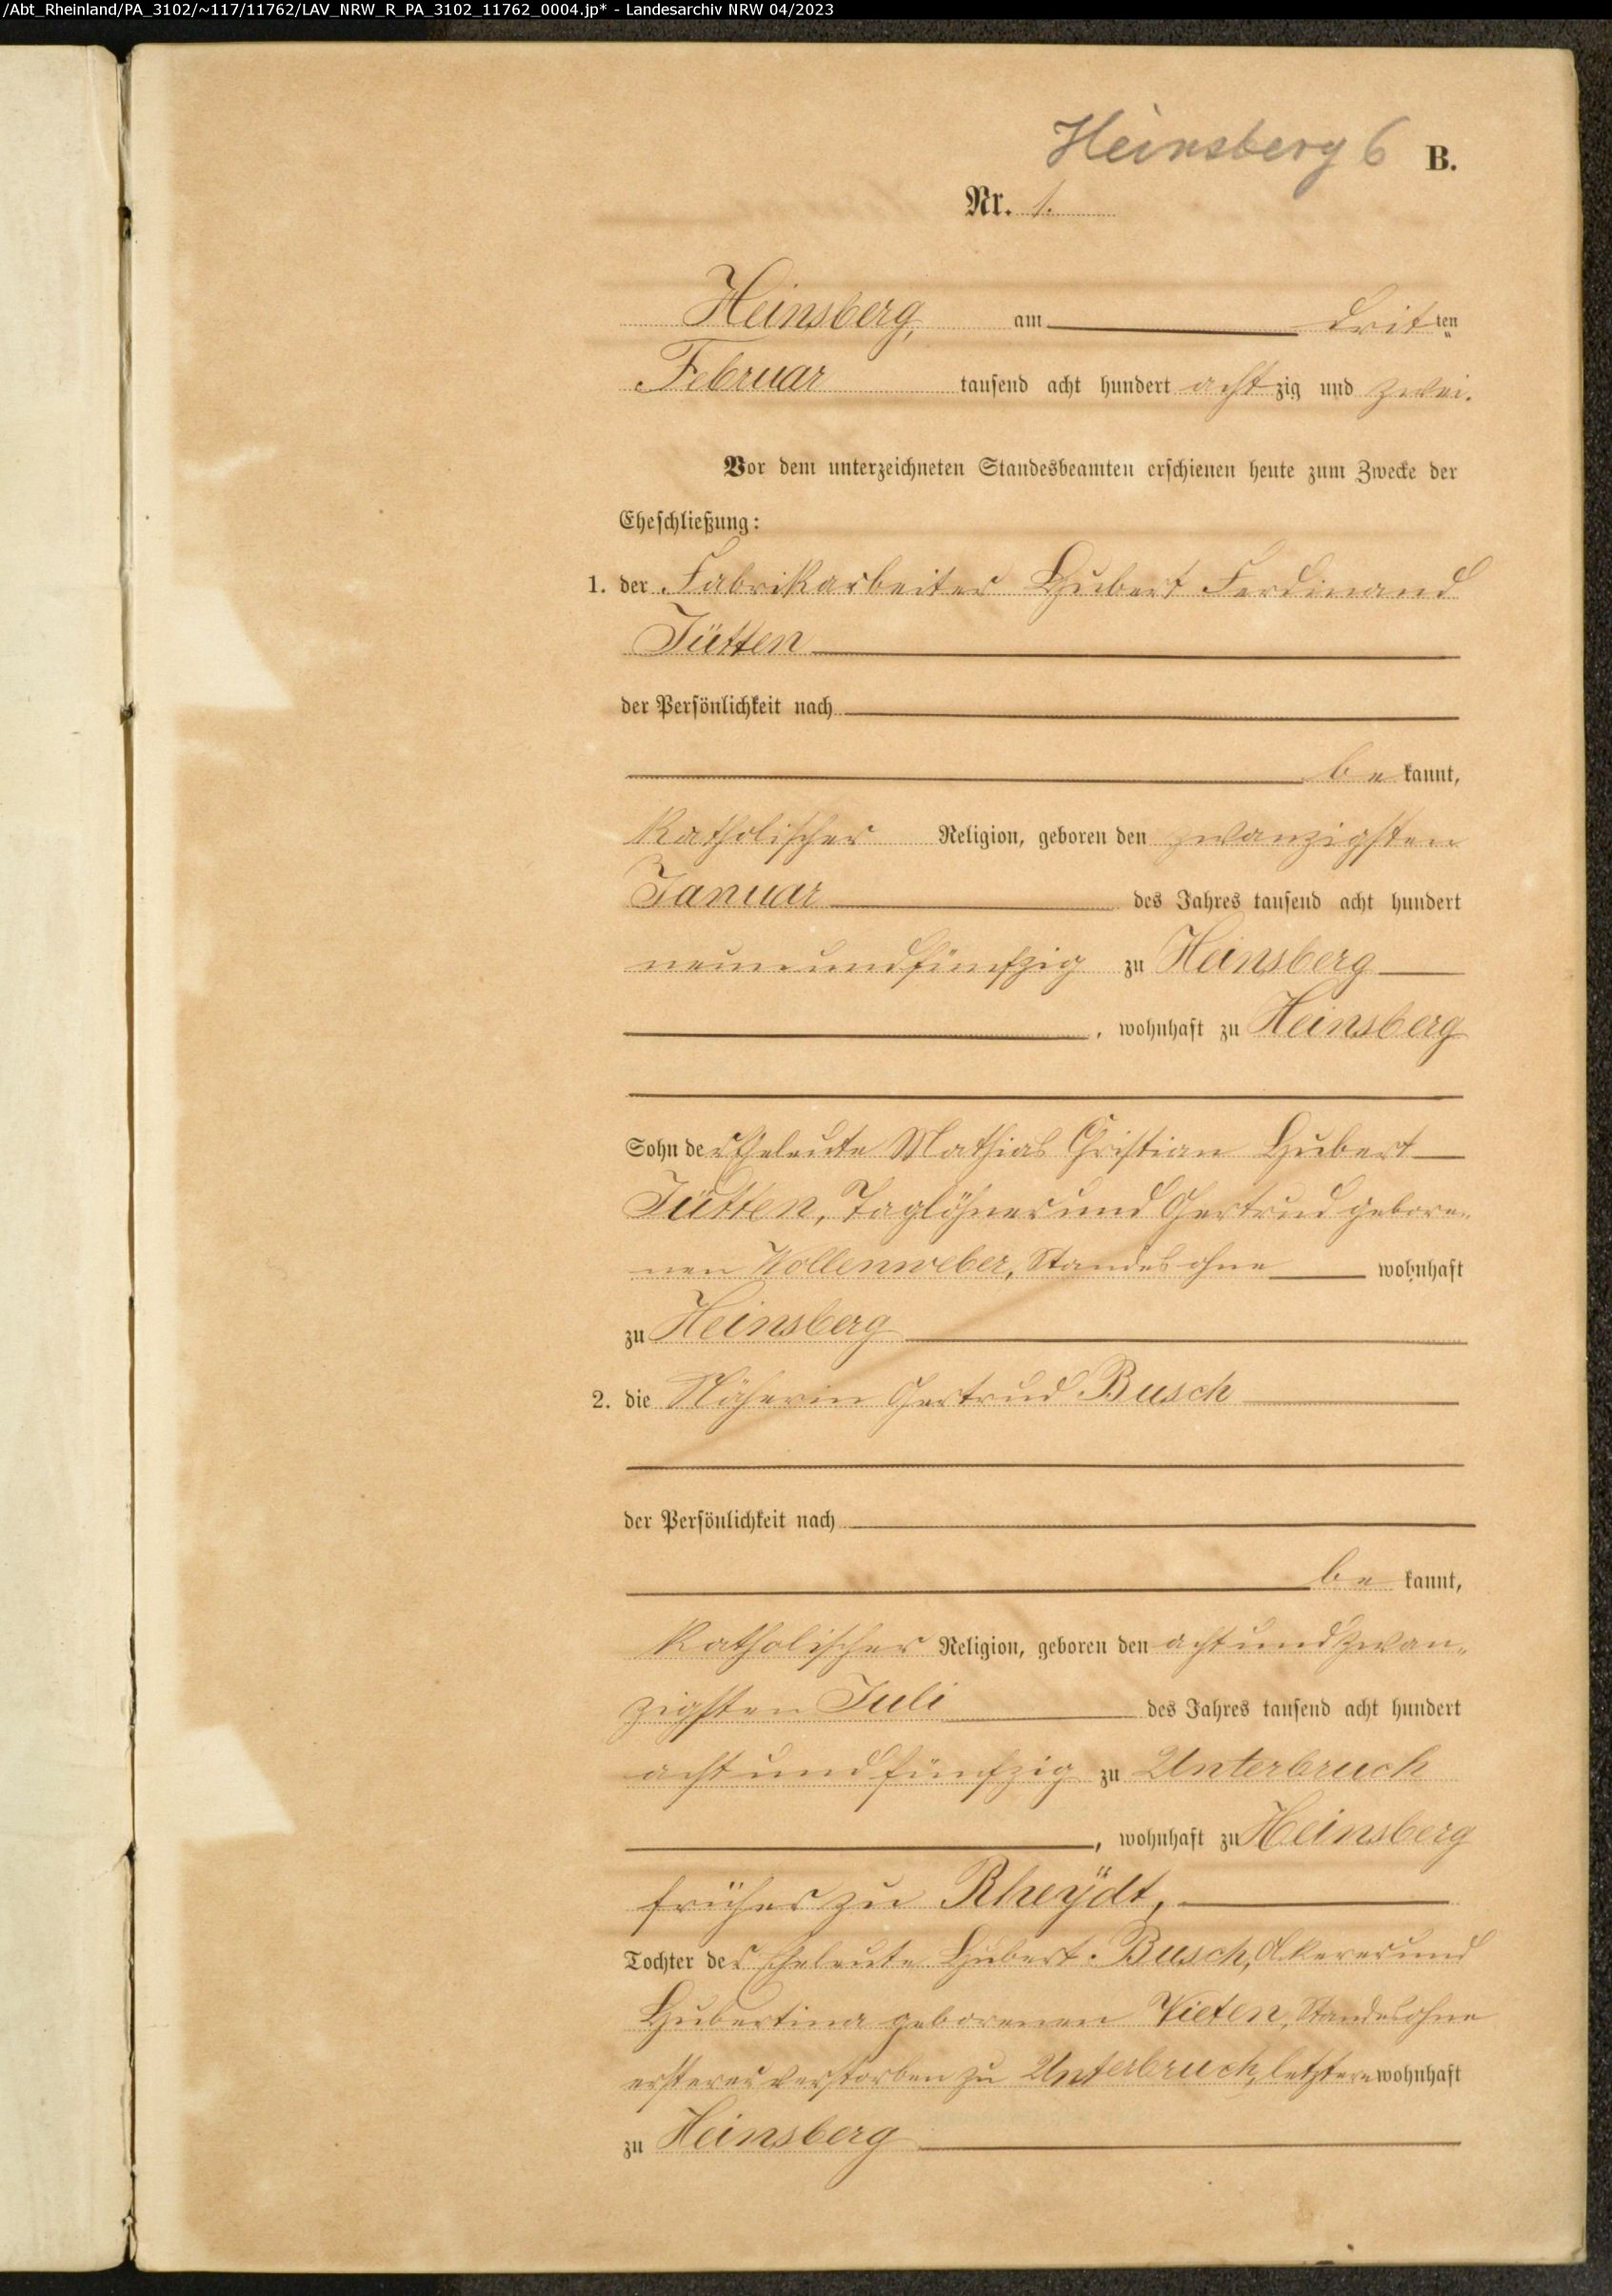 /Abt_Rheinland/PA_3102/~117/11762/LAV_NRW_R_PA_3102_11762_0004.jp* - Landesarchiv NRW 04/2023
Heinsberg 6 B.
Nr. 1.
Heinsberg, am dritten
Februar tausend acht hundert achtzig und zwei.
Vor dem unterzeichneten Standesbeamten erschienen heute zum Zwecke der
Eheschließung:
1. der Fabrikarbeiter Hubert Ferdinand
Jütten
der Persönlichkeit nach
be kannt,
katholischer Religion, geboren den zwanzigsten
Januar des Jahres tausend acht hundert
neunundfünfzig zu Heinsberg
, wohnhaft zu Heinsberg
Sohn der Eheleute Mathias Christian Hubert
Jütten, Taglöhner und Gertrud gebore-
nen Wollenweber, Standes ohne wohnhaft
zu Heinsberg
2. die Näherin Gertrud Busch
der Persönlichkeit nach
be kannt,
katholischer Religion, geboren den achtundzwan-
zigsten Juli des Jahres tausend acht hundert
achtundfünfzig zu Unterbruch
, wohnhaft zu Heinsberg
früher zu Rheÿdt,
Tochter der Eheleute Hubert Busch, Ackerer und
Hubertina geborenen Vieten, Standes ohne
ersterer verstorben zu Unterbruch, letztere wohnhaft
zu Heinsberg